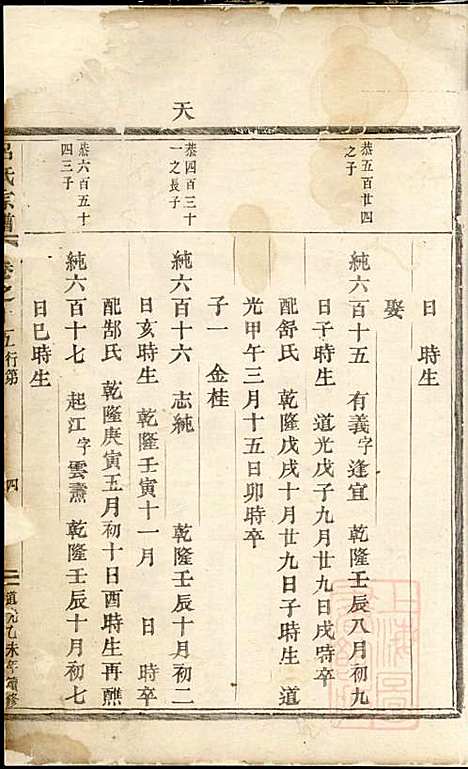 天
日　時生
娶
恭五百廿四之子
純六百十五　有義字逢宜　乾隆壬辰八月初九
日子時生　道光戊子九月廿九日戌時卒
配舒氏　乾隆戊戌十月廿九日子時生　道
光甲午三月十五日卯時卒
子一　金桂
恭四百三十一之長子
純六百十六　志純　乾隆壬辰十月初二
日亥時生　乾隆壬寅十一月　日　時卒
配郜氏　乾隆庚寅五月初十日酉時生再醮
恭六百五十四三子
純六百十七　起江字雲肅　乾隆壬辰十月初七
日巳時生
呂氏宗譜　卷之　五行第　四　道光乙未年續修
上海圖書館藏